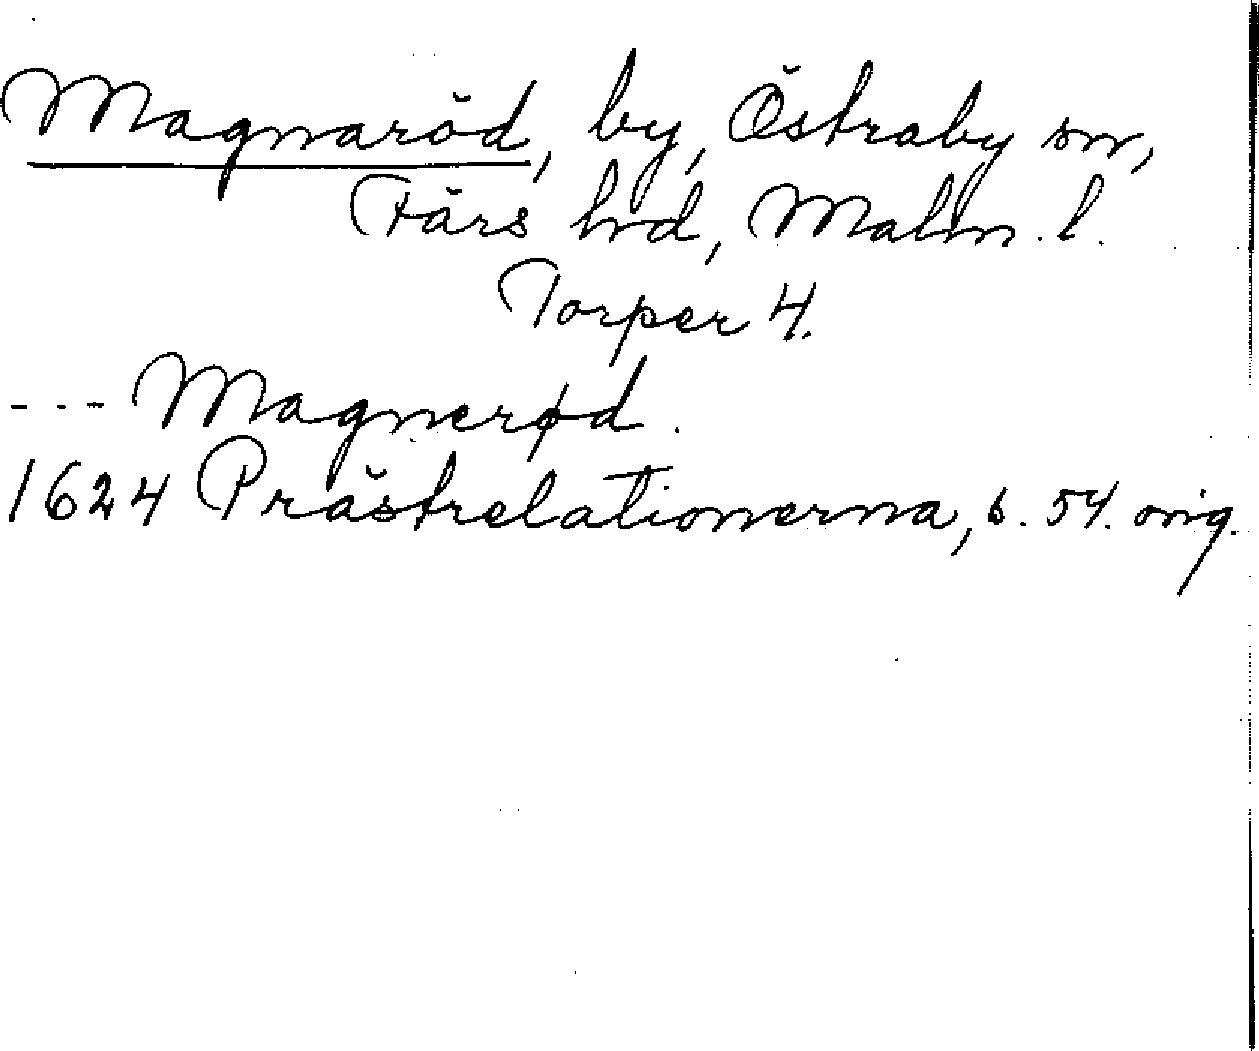 Magnaröd, by, Östraby sn,
Färs hd, Malm. l.
Torper 4.
--- Magnerød.
1624 Prästrelationerna, s. 54. orig.